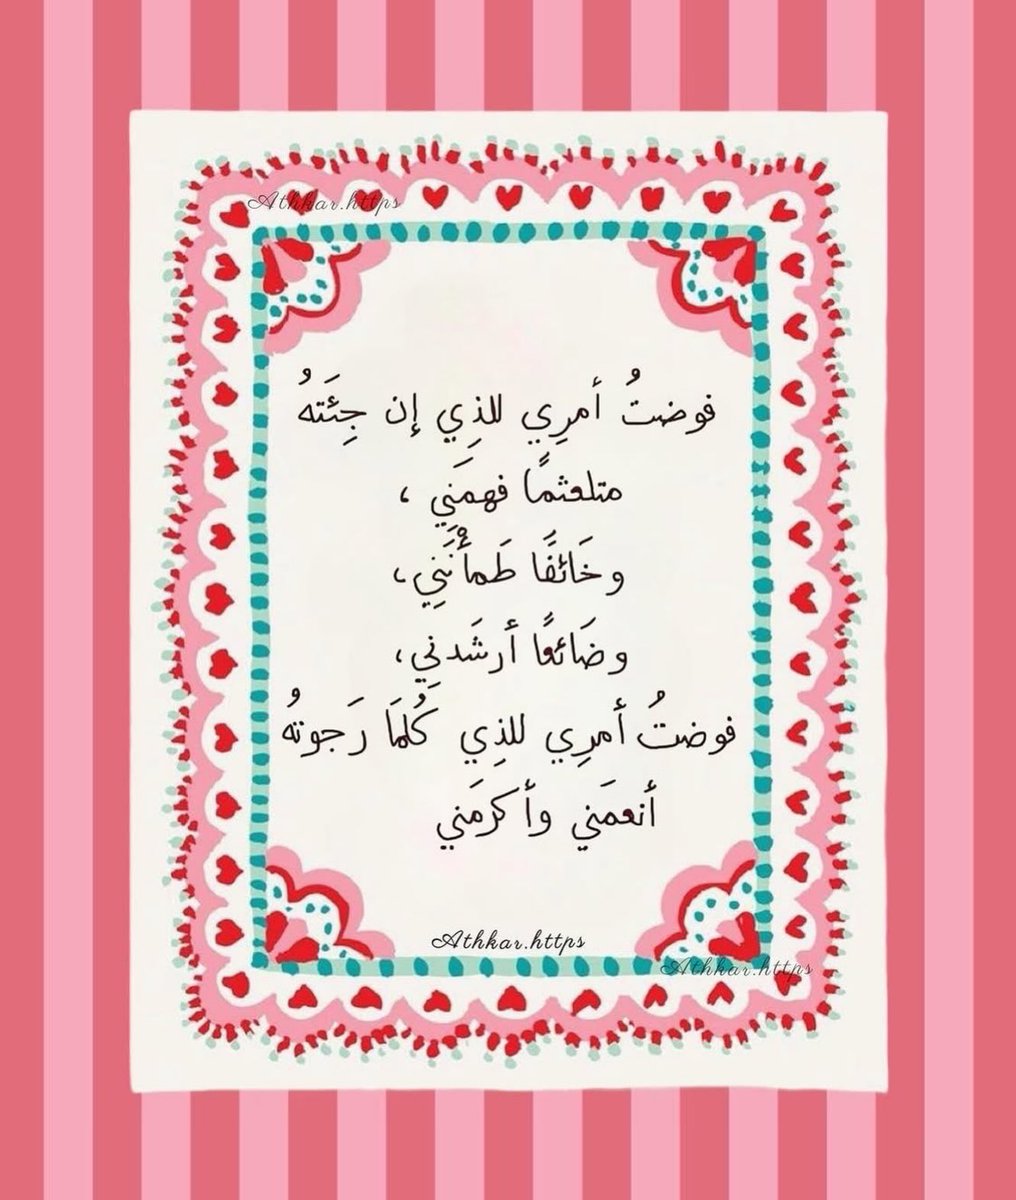 Athkar.https
فوضتُ أمرِي للذِي إن جِئَتهُ
متلعثمًا فهمَنِي ،
وخَائفًا طَمأْنَنِي،
وضَائعًا أرشَدنِي،
فوضتُ أمرِي للذِي كُلمَا رَجوتهُ
أنعمَني وأكرمَني
Athkar.https
Athkar.https